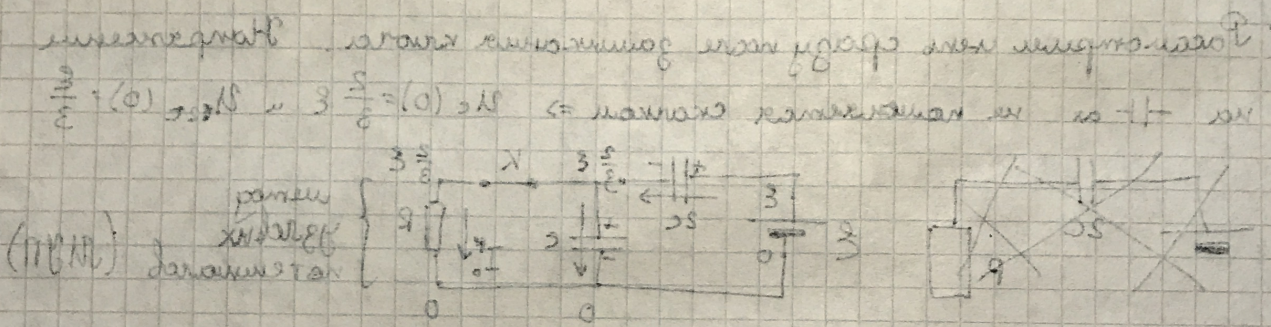 Рассмотрим цепь сразу после замыкания ключа. Напряжения
на -||- ах не изменяется скачком => U_C(0) = 2/3 ε и U_2C(0) = ε/3
2C R
ε ε 0 + - 2C 2/3 ε K 2/3 ε
C + - I₀ R
0 0
метод
узловых
потенциалов (МУП)